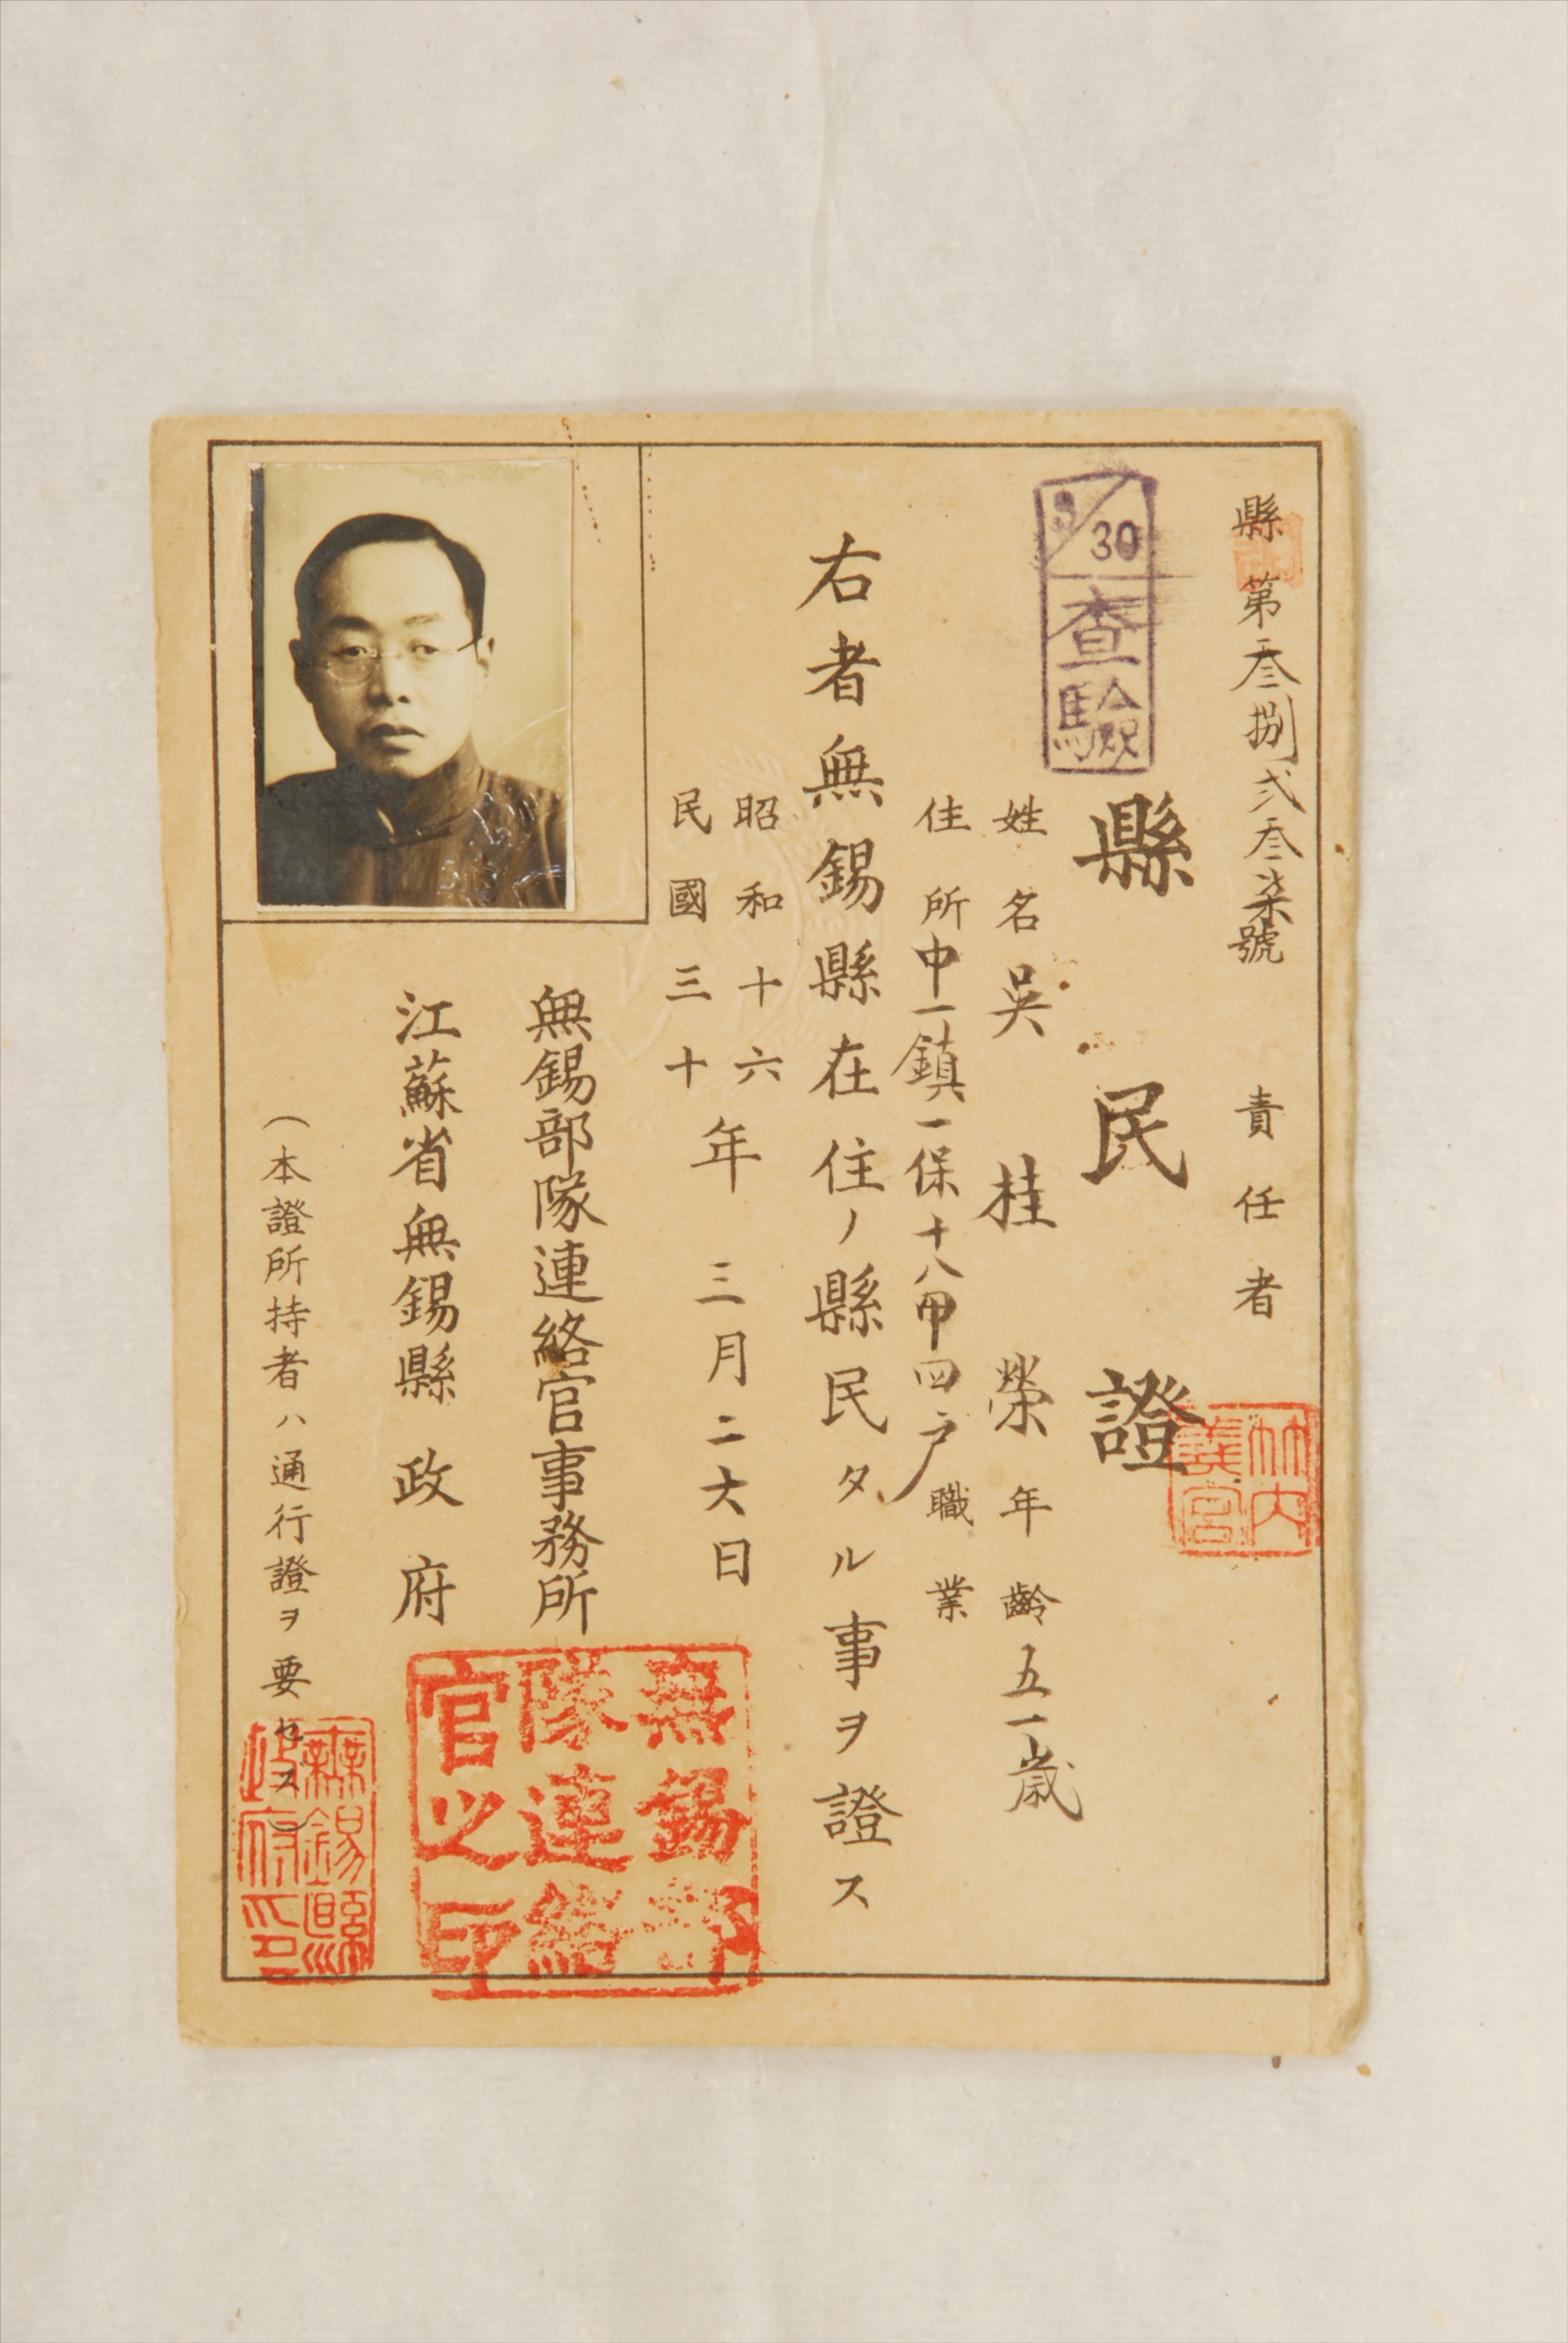 縣第叁捌弍叁柒號
責任者
竹内
義宮
縣民證
30
查驗
姓名吳桂榮年齡五一歳
住所中一鎮一保十八甲四戸職業
右者無錫縣在住ノ縣民タル事ヲ證ス
昭和十六
民國三十
年三月二六日
無錫部隊連絡官事務所
無錫部
隊連絡
官之印
江蘇省無錫縣政府
(本證所持者ハ通行證ヲ要セス)
無錫縣
政府印